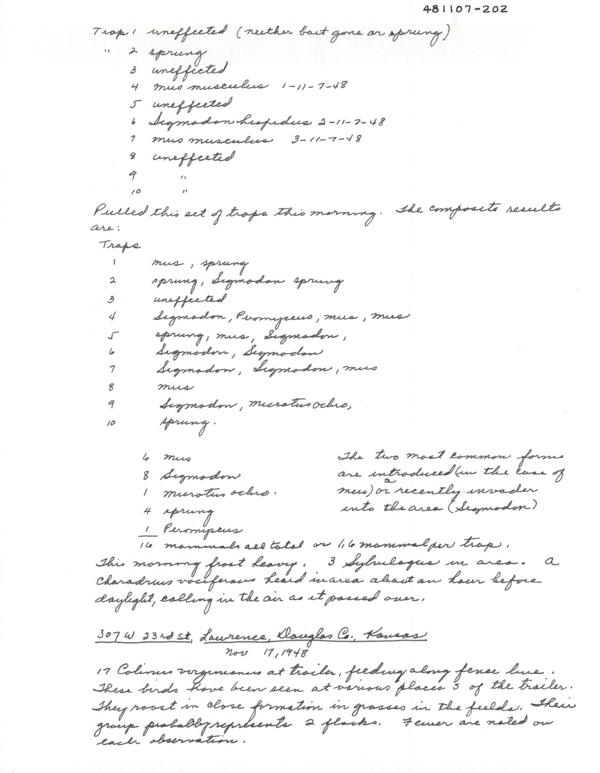 481107-202
Trap 1 uneffected (neither bait gone or sprung)
" 2 sprung
3 uneffected
4 mus musculus 1-11-7-48
5 uneffected
6 Sigmodon hispidus 2-11-7-48
7 mus musculus 3-11-7-48
8 uneffected
9 "
10 "
Pulled this set of traps this morning. The composite results
are:
Traps
1 mus, sprung
2 sprung, Sigmodon sprung
3 uneffected
4 Sigmodon, Peromyscus, mus, mus
5 sprung, mus, Sigmodon,
6 Sigmodon, Sigmodon
7 Sigmodon, Sigmodon, mus
8 mus
9 Sigmodon, microtus ochro,
10 sprung.
6 mus
8 Sigmodon
1 microtus ochro.
4 sprung
1 Peromyscus
16 mammals all total or 1.6 mammal per trap.
The two most common forms
are introduced (in the case of
mus) or a recently invader
into the area (Sigmodon)
This morning frost heavy. 3 Sylvilagus in area. A
Charadrius vociferous heard in area about an hour before
daylight, calling in the air as it passed over.
307 W 23rd St, Lawrence, Douglas Co., Kansas
Nov 17, 1948
17 Colinus virginianus at trailer, feeding along fence line.
These birds have been seen at various places S of the trailer.
They roost in close formation in grasses in the fields. Their
group probably represents 2 flocks. Fewer are noted on
each observation.